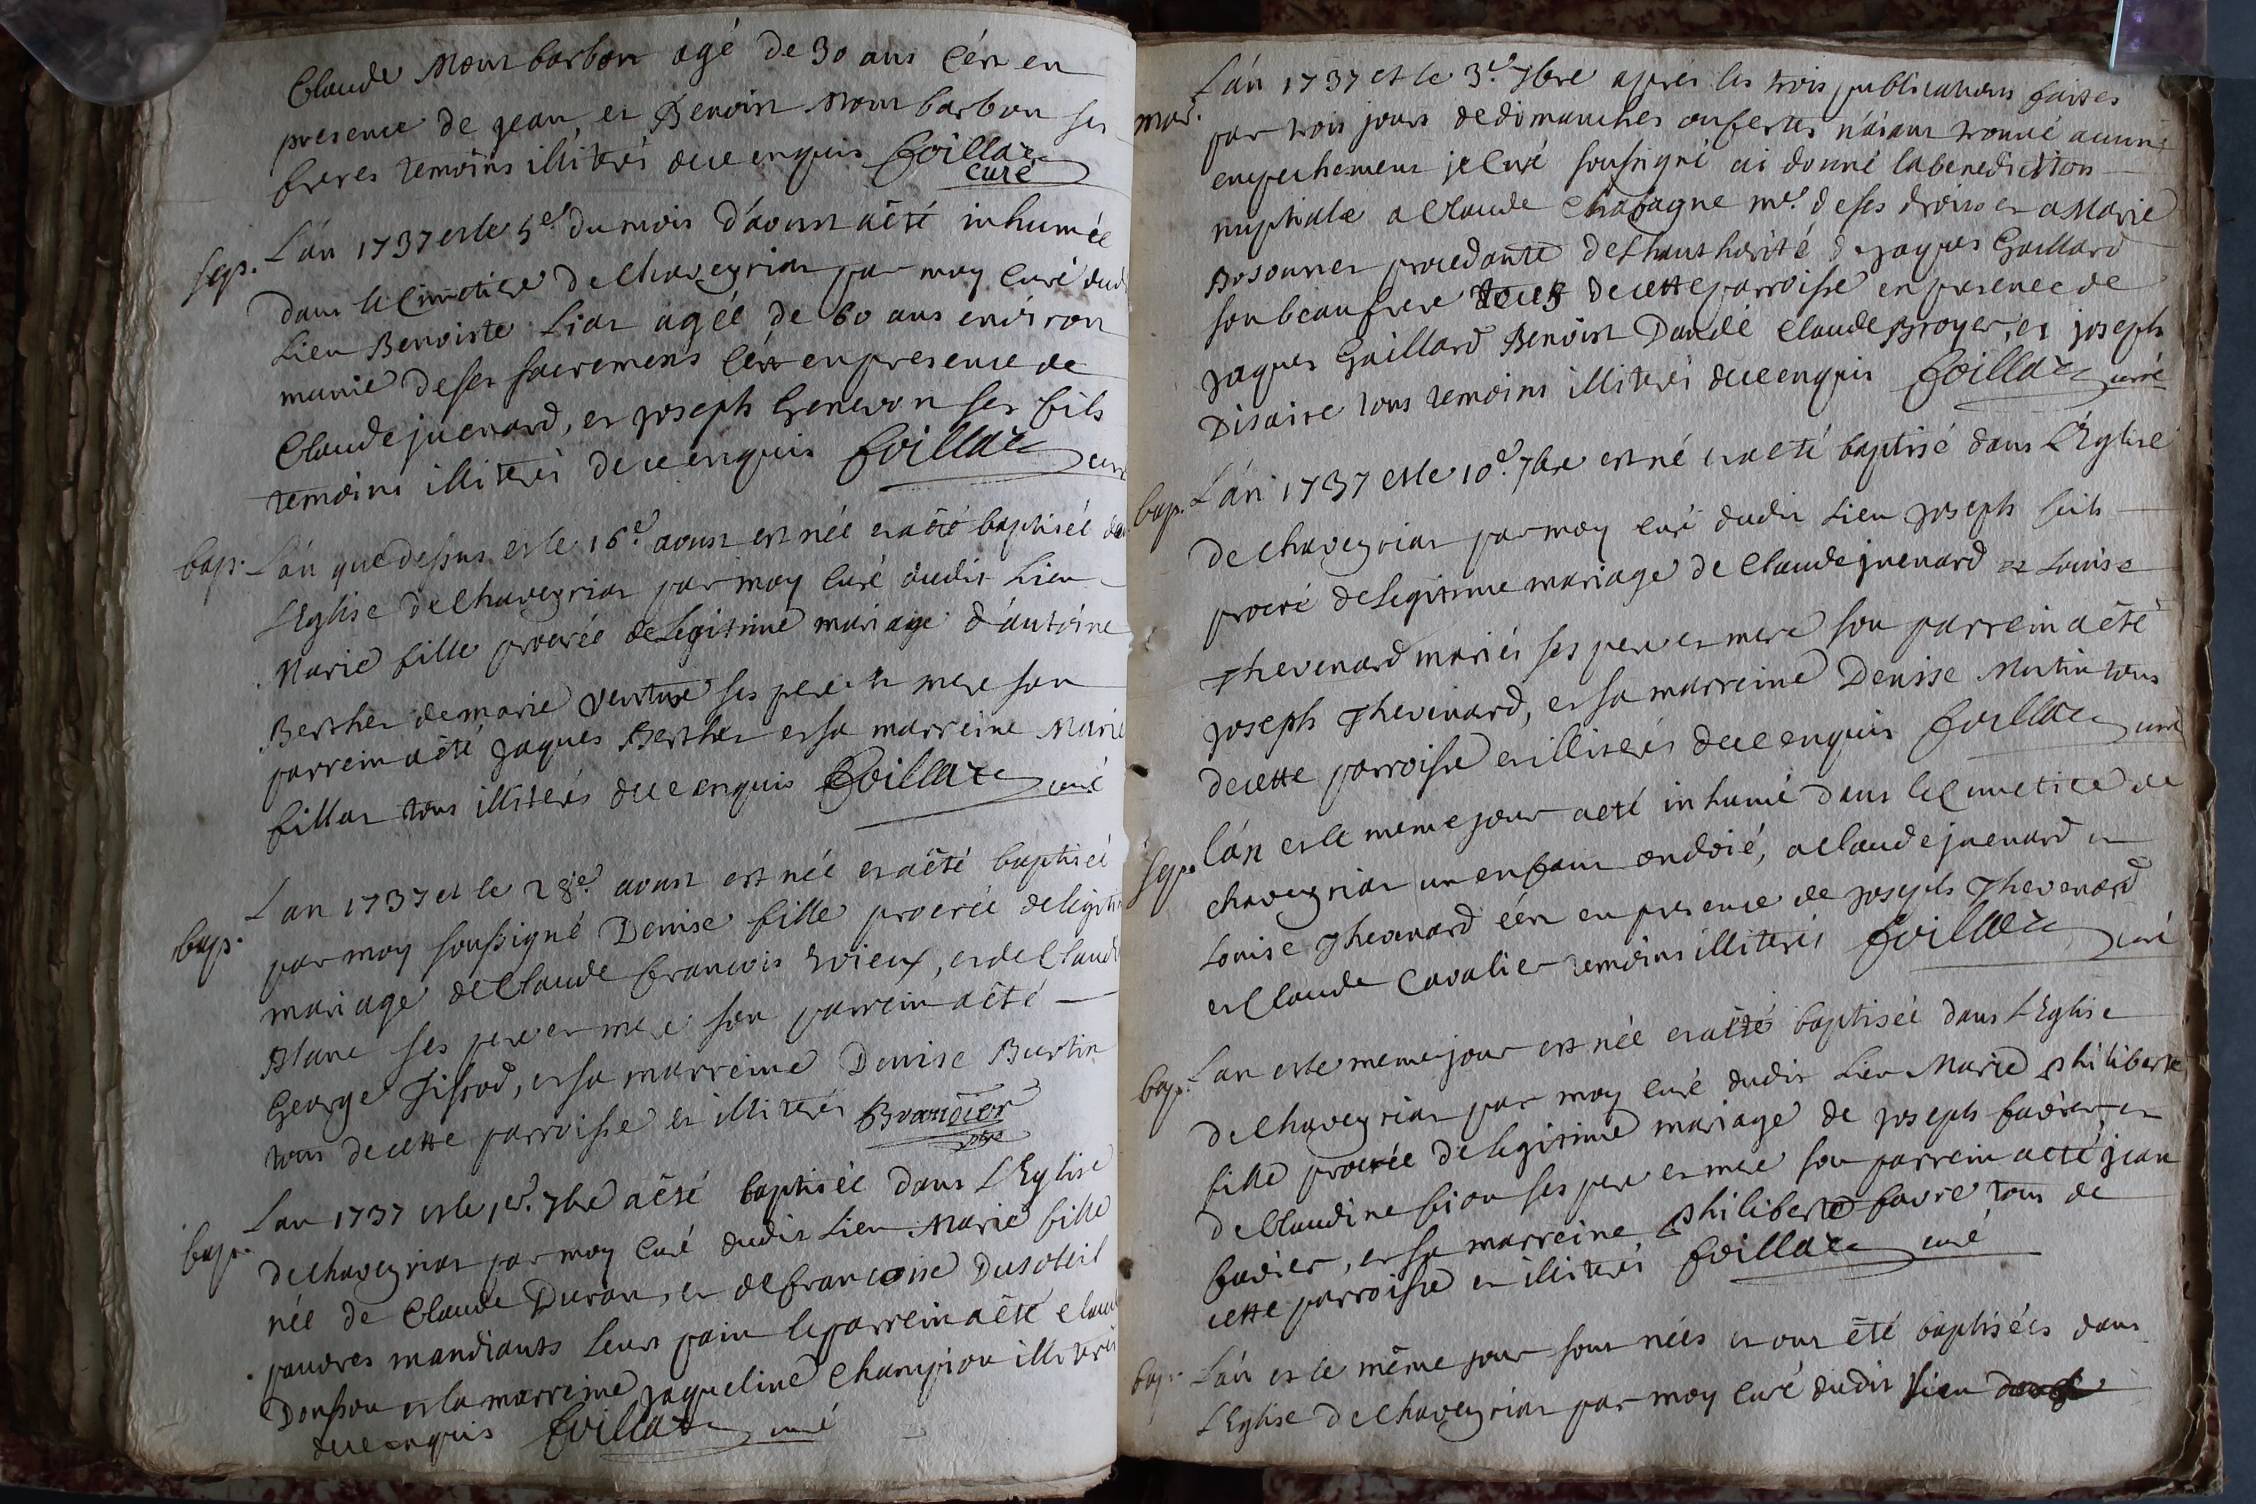 Claude Montbarbon agé de 30 ans c'ést en
presence de jean, et Benoist Montbarbon ses
freres temoins illiterés de ce enquis foillaz
curé
sep. L'án 1737 et le 5e. du mois d'áoust a été inhumée
dans le Cimetiere de Chaveyriat par moy Curé dud
Lieu Benoiste Liat agéé de 60 ans environ
munie de ses sacremens c'ést en presence de
Claude juenard, et joseph Genevon ses fils
temoins illiterés de ce enquis foillaz curé
bap. L'án que dessus et le 16e. aoust est néé et a été baptiséé dan
L'Eglise de Chaveyriat par moy Curé dudit Lieu
Marie fille procréé de Legitime mariage d'ántoine
Berthet de marie ses pere et mere son
parrein a été jaques Berthet et sa marreine Marie
fillat tous illiterés de ce enquis foillaz curé
bap. L'an 1737 et le 28e. aoust est néé et a été baptiséé
par moy soussigné Denise fille procréé de legiti
mariage de Claude francois Rvieux, et de Claud
Blanc ses pere et mere son parrein a été
George Tissod, et sa marreine Denise Burtin
tous de cette parroisse et illiterés Brandion
ptre
bap. L'an 1737 et le 1er. 7bre a été baptiséé dans L'Eglise
de chaveyriat par moy Curé dudit Lieu Marie fille
néé de Claude Duran, et de francoise Dusoleil
pauvres mandiants leurs pain le parrein a été Claud
Donsson et la marreine jaqueline Champion illiterés
de ce enquis foillaz curé
mar. L'án 1737 et le 3e. 7bre aprés les trois publications faites
par trois jours de dimanches ou festes n'áiant trouvé aucun
empechement je Curé soussigné ai donné la benediction
nuptiale a Claude Chafagne me. de ses droits et a Marie
Bosonnet procedante de L'hauthorité de jaques Gaillard
son beaufrere de cette parroisse en presence de
jaques Gaillard Benoist Dandé Claude Broyer, et joseph
Disaire tous temoins illiterés de ce enquis foillaz curé
bap. L'án 1737 et le 10e. 7bre est né et a été baptisé dans L'Eglise
de Chaveyriat par moy Curé dudit Lieu joseph fils
procré de Legitime mariage de Claude juenard et Louise
Thevenard mariés ses pere et mere son parrein a été
joseph Thevenard, et sa marreine Denise Martin tous
de cette parroisse et illiterés de ce enquis foillaz curé
sep. L'án et le meme jour a eté inhumé dans le Cimetiere de
chaveyriat un enfant ondoié, a Claude juenard et
Louise Thevenard c'ést en presence de joseph Thevenard
et Claude Cavalier temoins illiterés foillaz curé
bap. L'an et le meme jour est néé et a été baptiséé dans L'Eglise
de Chaveyriat par moy Curé dudit Lieu Marie philiberte
fille procréé de legitime mariage de joseph favier, et
de Claudine fion ses pere et mere son parrein a eté jean
favier, et sa marreine philiberte favre tous de
cette parroisse et illiterés foillaz curé
bap. L'án et le même jour sont néés et ont été baptiséés dans
L'Eglise de Chaveyriat par moy Curé dudit Lieu